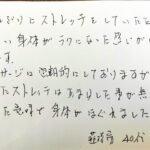 ぶりにストレッチをしていただ
い身体がラクになった感じが
です。
サージは定期的にしておりますが
たストレッチはあまりした事が無
た意味で身体がほぐれました
40代